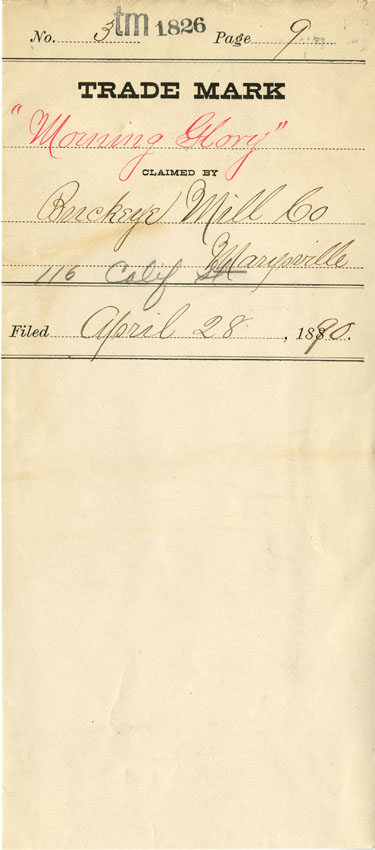 No. 3 tm 1826 Page 9
TRADE MARK
"Morning Glory"
CLAIMED BY
Buckeye Mill Co
Marysville
116 Calif St
Filed April 28, 1890.